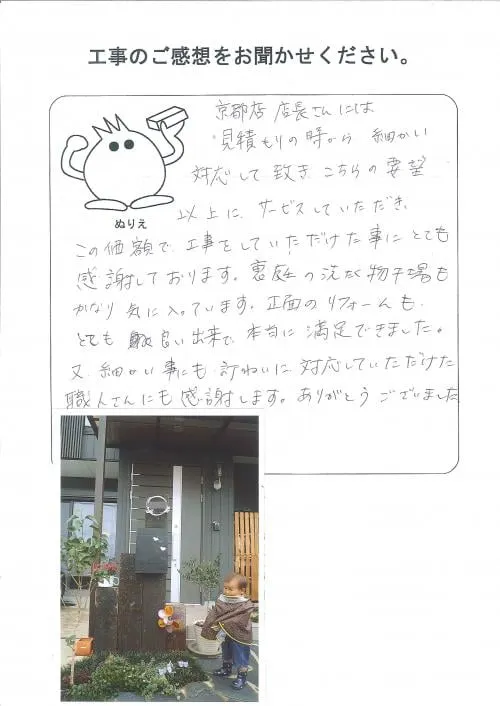 工事のご感想をお聞かせください。
京都店 店長さんには
見積もりの時から 細かい
対応して致き、こちらの要望
ぬりえ
以上に、サービスしていただき、
この価額で、工事をしていただけた事にとても
感謝しております。裏庭の洗たく物干場も
かなり気に入っています。正面のリフォームも、
とても 良い出来で、本当に満足できました。
又、細かい事にも、ていねいに対応していただけた
職人さんにも感謝します。ありがとうございました